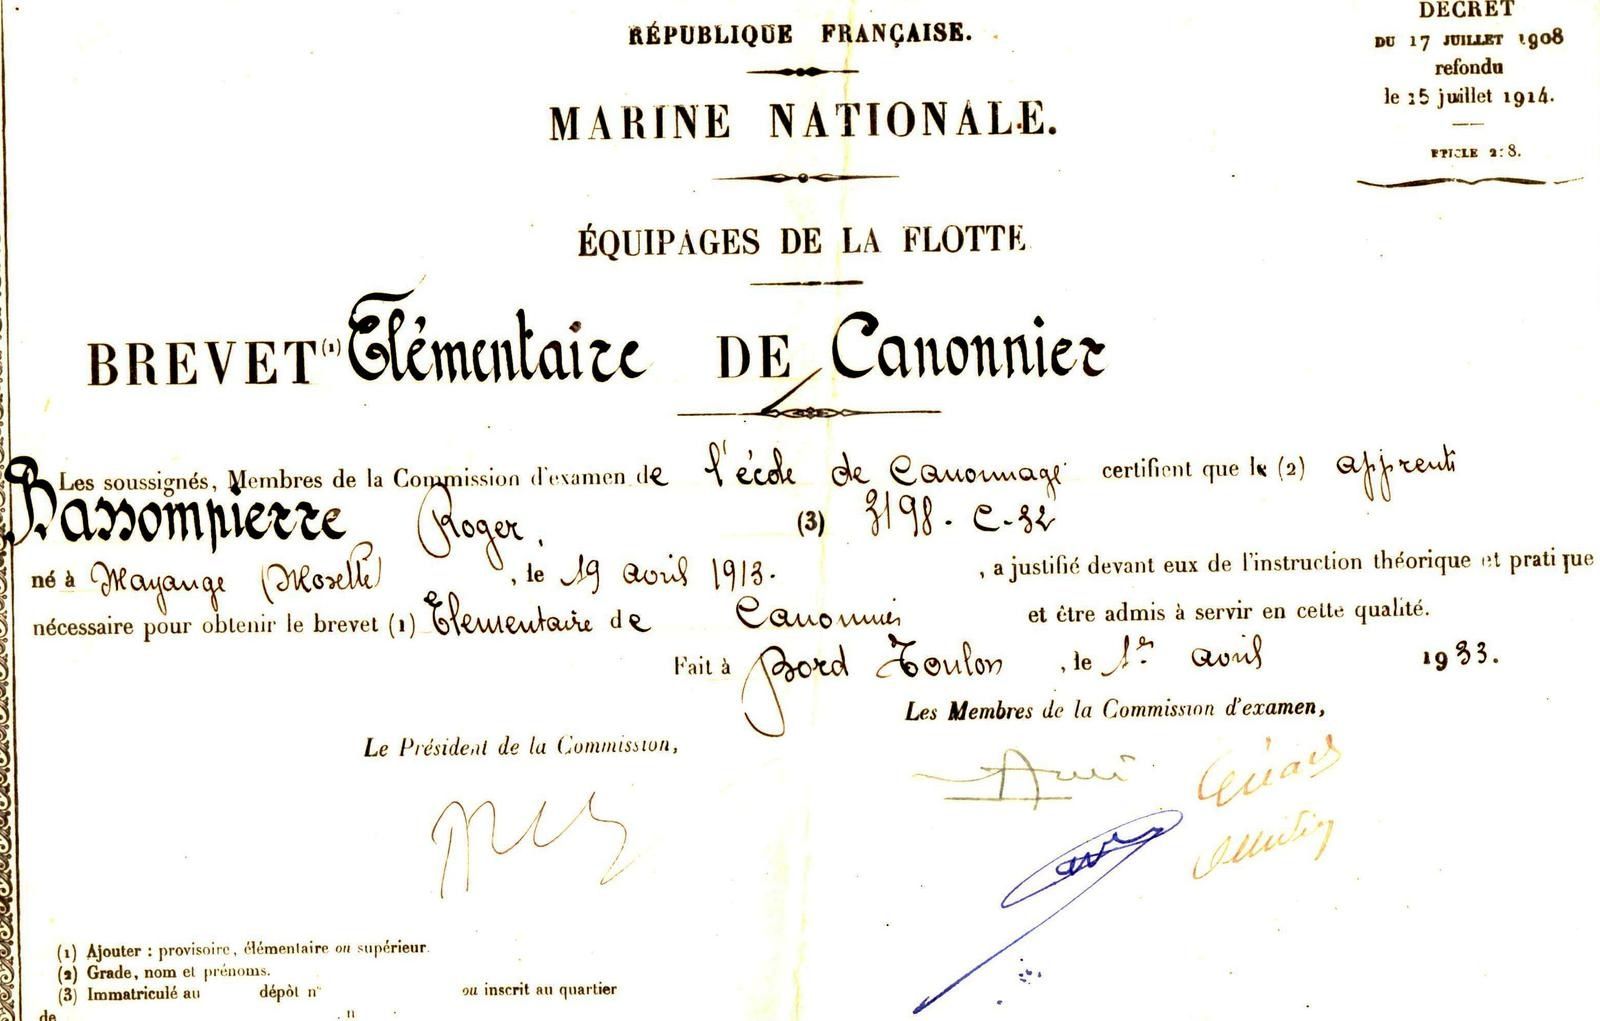 RÉPUBLIQUE FRANÇAISE.
DÉCRET
DU 17 JUILLET 1908
refondu
le 15 juillet 1914.
MARINE NATIONALE.
ÉQUIPAGES DE LA FLOTTE
BREVET (1) Elémentaire DE Canonnier
Les soussignés, Membres de la Commission d'examen de l'école de Canonnage certifient que le (2) apprenti
Bassompierre Roger, (3) 3198 - C - 32
né à Hayange (Moselle), le 19 avril 1913. , a justifié devant eux de l'instruction théorique et pratique
nécessaire pour obtenir le brevet (1) Elementaire de Canonnier et être admis à servir en cette qualité.
Fait à Bord Toulon, le 1er avril 1933.
Les Membres de la Commission d'examen,
Le Président de la Commission,
(1) Ajouter : provisoire, élémentaire ou supérieur.
(2) Grade, nom et prénoms.
(3) Immatriculé au dépôt n° ou inscrit au quartier
de n